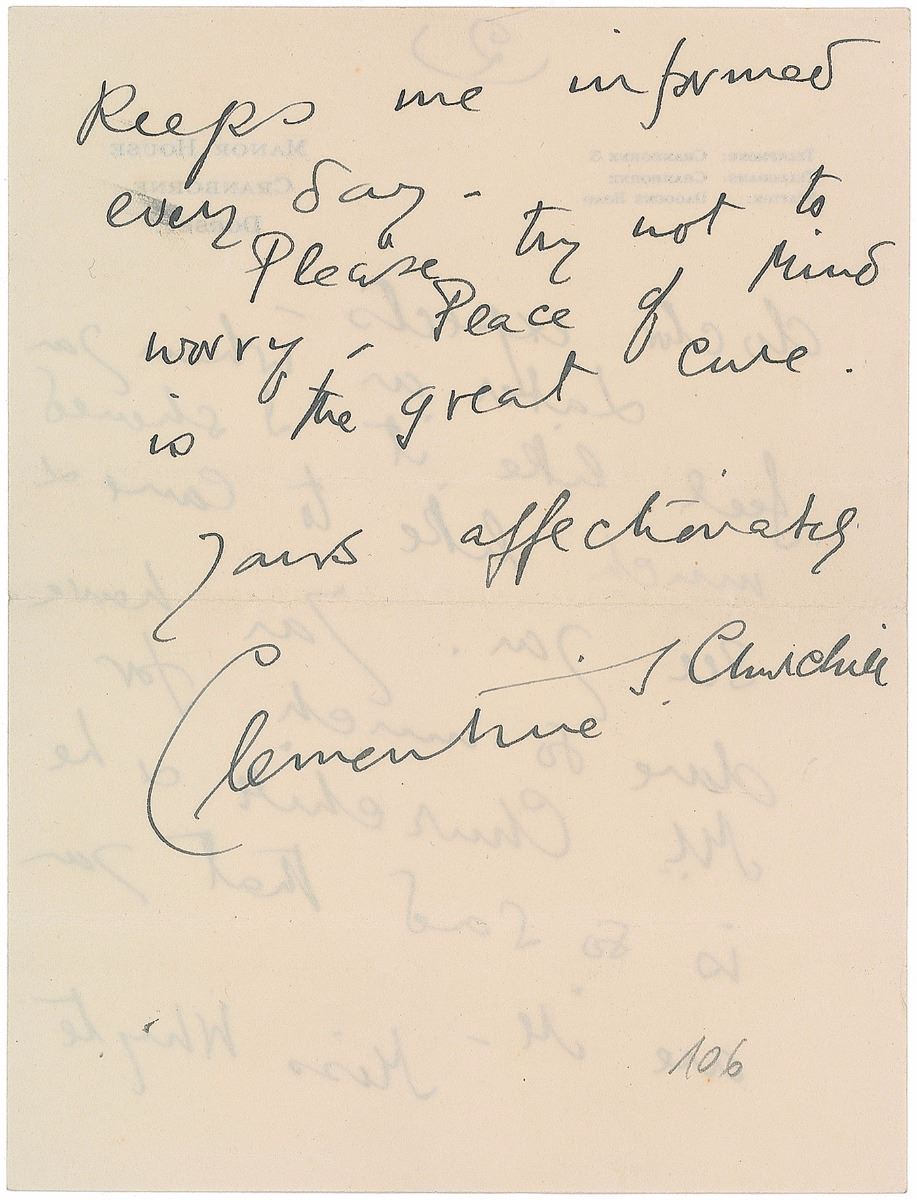 Keeps me informed
every day -
Please try not to
worry - Peace of Mind
is the great cure.
Yours affectionately
Clementine S Churchill
106